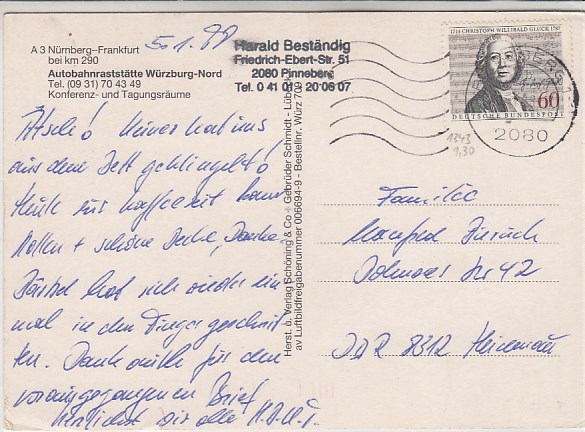 A 3 Nürnberg–Frankfurt
bei km 290
Autobahnraststätte Würzburg-Nord
Tel. (09 31) 70 43 49
Konferenz- und Tagungsräume
5.1.88
Harald Beständig
Friedrich-Ebert-Str. 51
2080 Pinneberg
Tel. 0 41 01 / 20 06 07
1714 CHRISTOPH WILLIBALD GLUCK 1787
60
DEUTSCHE BUNDESPOST
2080
1343
1,30
Herst. u. Verlag Schöning & Co + Gebrüder Schmidt - Lübeck
av Luftbildfreigabenummer 006694-9 - Bestellnr. Würz 709
Ätsch! Keiner hat uns
aus dem Bett geklingelt!
Heute zur Kaffeezeit
Rollen + schöne Decke, Danke
hat sich wieder ein
mal in den Finger geschnit
ten. Danke für den
vorangegangenen Brief
Herzlichst Dir alle H.B.U.T.
Familie
Manfred
Str 42
DDR 8312 Heidenau